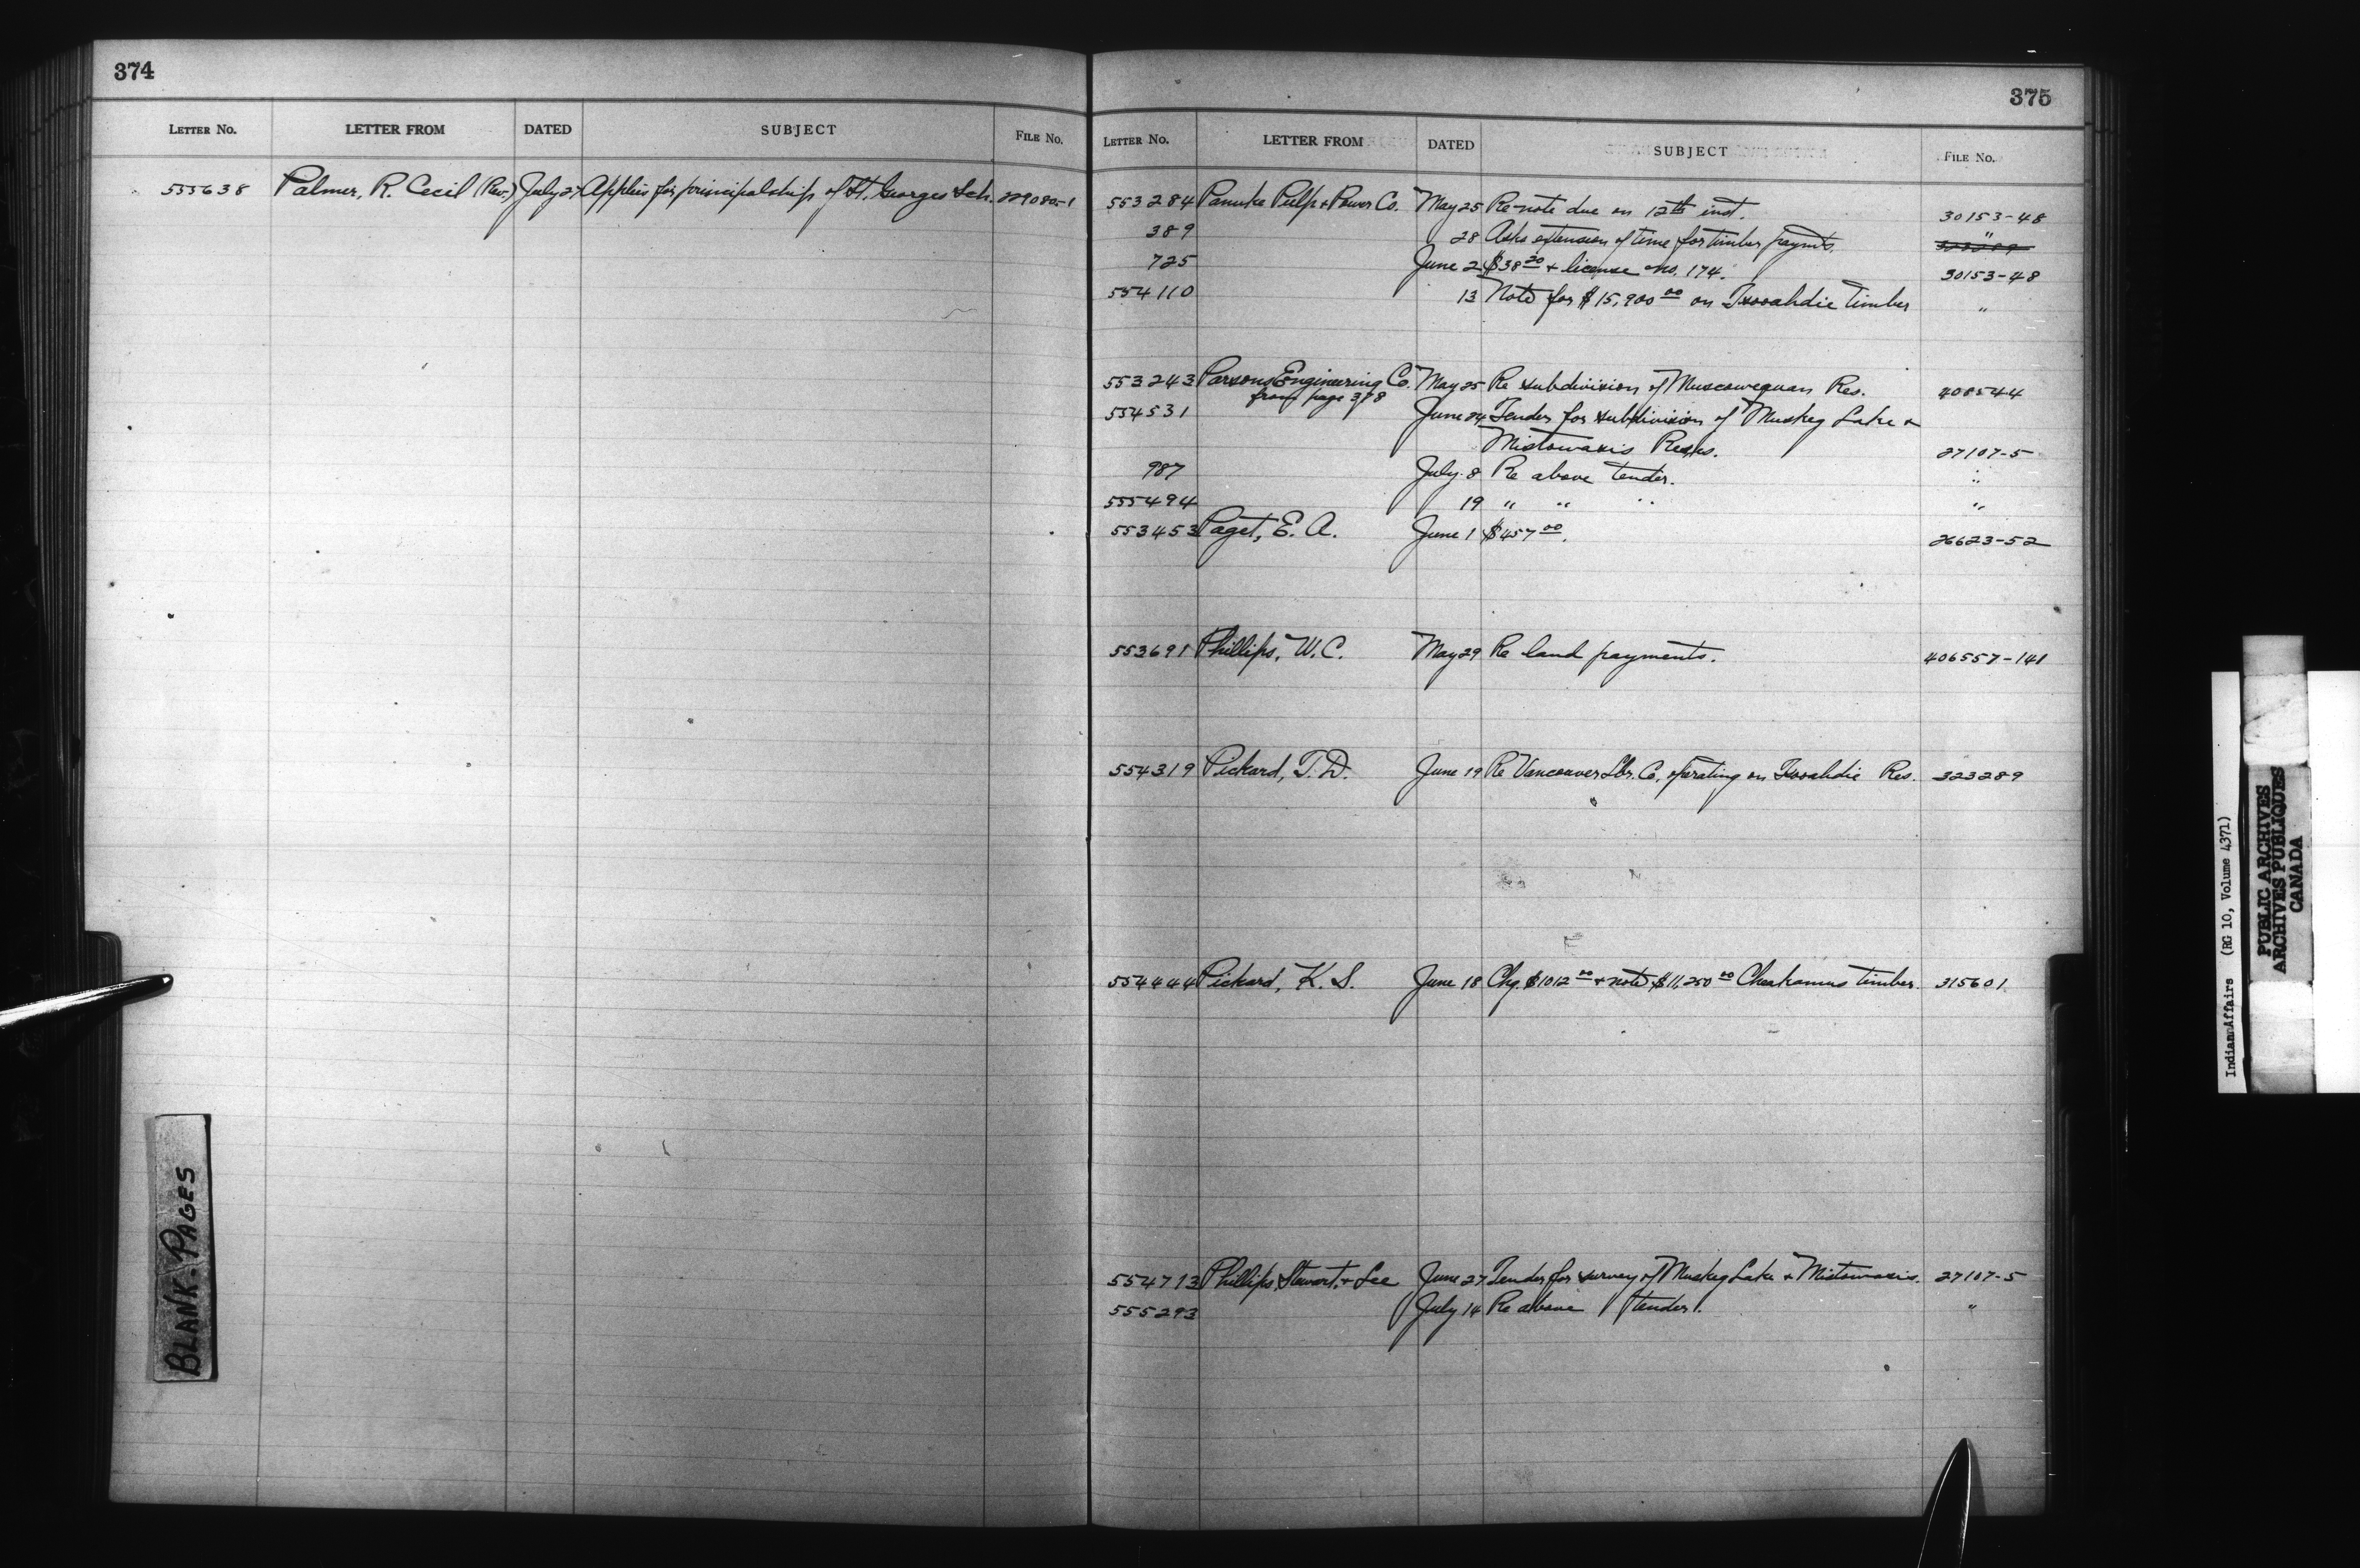 374
LETTER NO. LETTER FROM DATED SUBJECT FILE NO.
555638 Palmer, R. Cecil (Rev.) July 27 Applies for principalship of St. Georges Sch. 229080-1
BLANK. PAGES
375
LETTER NO. LETTER FROM DATED SUBJECT FILE NO.
553284 Panuke Pulp & Power Co. May 25 Re note due on 12th inst. 30153-48
389 28 Asks extension of time for timber paymts. "
725 June 2 $38.20 & license no. 174. 30153-48
554110 13 Note for $15,900.00 on Tsooahdie Timber "
553243 Parsons Engineering Co. May 25 Re subdivision of Muscowequan Res. 408544
from page 378
554531 June 24 Tender for subdivision of Muskeg Lake &
Mistowasis Res. 27107-5
987 July 8 Re above tender. "
555494 19 " " " "
553453 Paget, E. A. June 1 $457.00. 26623-52
553691 Phillips, W. C. May 29 Re land payments. 406557-141
554319 Pickard, T. D. June 19 Re Vancouver Lbr. Co. operating on Tsooahdie Res. 323289
554444 Pickard, K. S. June 18 Chq. $1012.00 & note $11,250.00 Cheakamus timber. 315601
554713 Phillips, Stewart, & Lee June 27 Tender for survey of Muskeg Lake & Mistowasis. 27107-5
555293 July 14 Re above tender. "
Indian Affairs (RG 10, Volume 4371)
PUBLIC ARCHIVES
ARCHIVES PUBLIQUES
CANADA